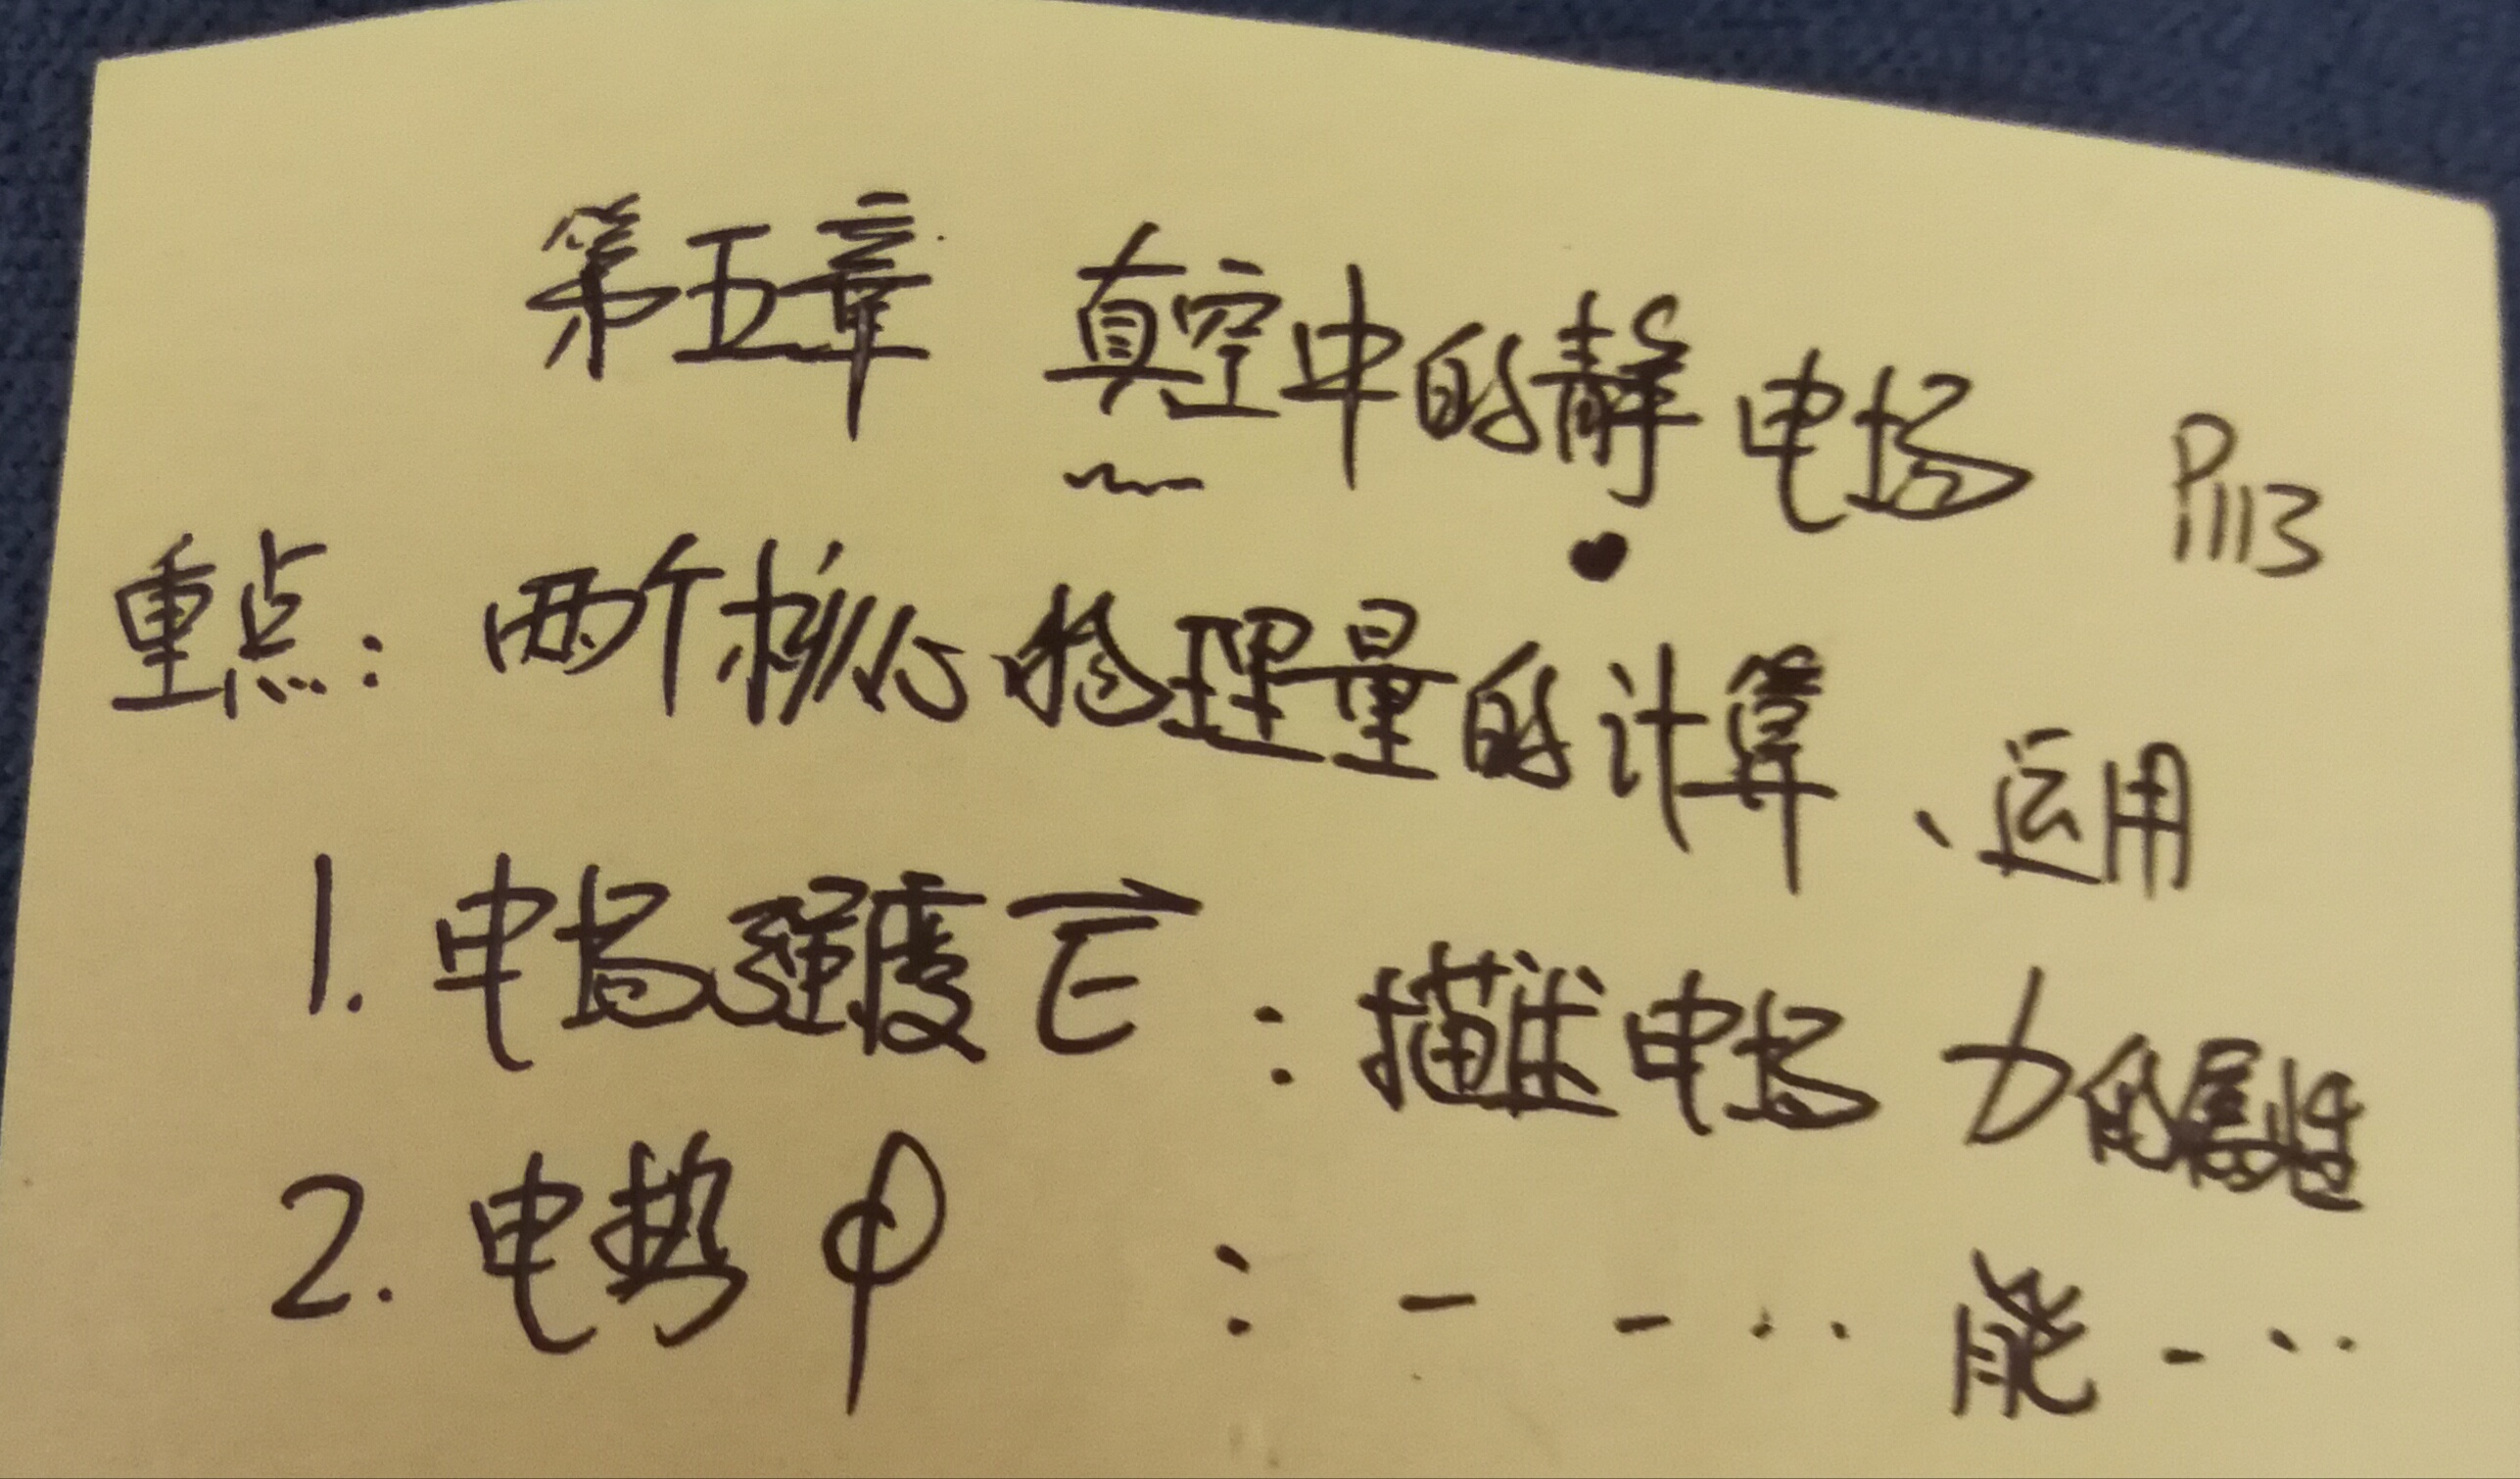 第五章 真空中的静电场 P113
重点: 两个核心物理量的计算、运用
1. 电场强度 E⃗ : 描述电场力的属性
2. 电势 φ : - - ·· 能 - ··